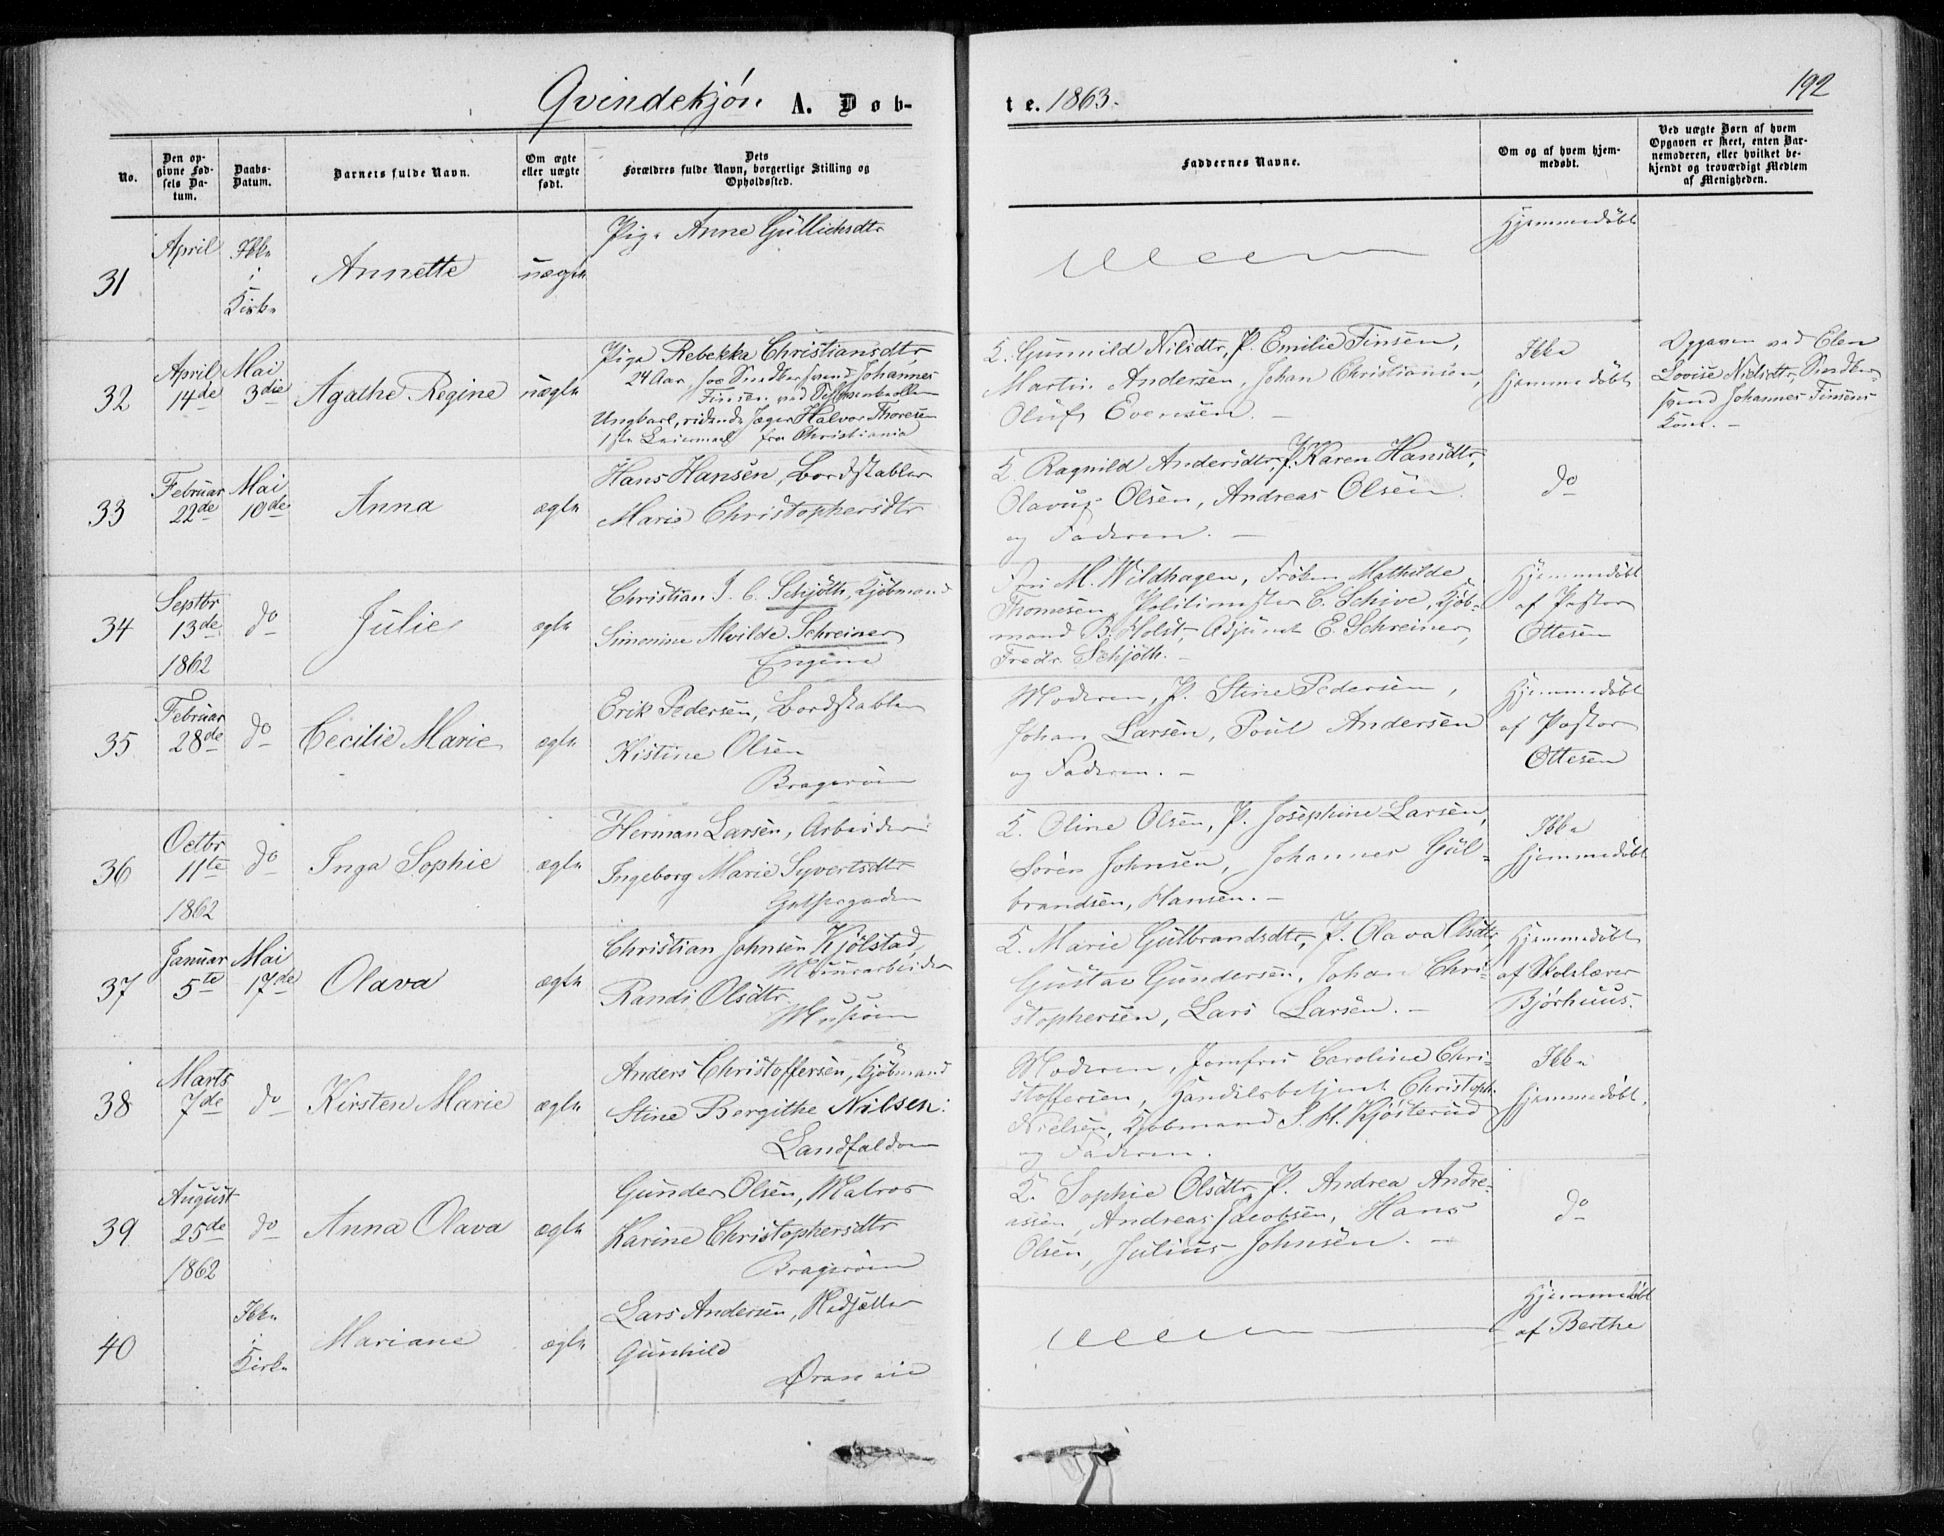 Qvindekjøn A. Døb-
te. 1863.
192
No.
Den op-
givne Fød-
sels Da-
tum.
Daabs-
Datum.
Barnets fulde Navn.
Om ægte
eller uægte
født.
Dets
Forældres fulde Navn, borgerlige Stilling og
Opholdssted.
Faddernes Navne.
Om og af hvem hjem-
medøbt.
Ved uægte Børn af hvem
Opgaven er skeet, enten Bar-
nemoderen, eller hvilket be-
kjendt og troværdigt Medlem
af Menigheden.
31
April
Ikke
i
Kirke
Annette
uægte
Pige Anne Gullichsdtr
Hjemmedøbt
32
April
14de
Mai
3die
Agathe Regine
uægte
Pige Rebekka Christiansdtr
24 Aar, hos Smedkersvend Johannes
Finsen ved
Ungkarl, ridende Jæger Halvor Thoresen
1ste Leiermaal fra Christiania
K. Gunnild Nilsdtr, P. Emilie Finsen,
Martin Andersen, Johan Christiansen,
Oluf Evensen. -
Ikke
hjemmedøbt
Opgaven ved Elen
Lovise Nielsdtr,
svend Johannes Finsens
Kone. -
33
Februar
22de
Mai
10de
Anna
ægte
Hans Hansen, Bordstabler
Marie Christophersdtr
K. Ragnild Andersdtr, P. Karen Hansdtr,
Olavus Olsen, Andreas Olsen
og Faderen. -
do
34
Septbr
13de
1862
do
Julie
ægte
Christian J. C. Schjøth, Kjøbmand
Simonine Alvilde Schreiner
Engene
Fru M. Wildhagen, Frøken Mathilde
Thomesen, Politimester C. Schive, Kjøb-
mand B. Holst, Adjunct E. Schreiner,
Fredr. Schjøth. -
Hjemmedøbt
af Pastor
Ottesen
35
Februar
28de
do
Cecilie Marie
ægte
Erik Pedersen, Bordstabler
Kistine Olsen
Bragerøen
Moderen, P. Stine Pedersen,
Johan Larsen, Poul Andersen
og Faderen. -
Hjemmedøbt
af Pastor
Ottesen
36
Octbr
11te
1862
do
Inga Sophie
ægte
Herman Larsen, Arbeider
Ingeborg Marie Syvertsdtr
K. Oline Olsen, P. Josephine Larsen,
Søren Johnsen, Johannes Gul-
brandsen, Hansen. -
Ikke
hjemmedøbt
37
Januar
5te
Mai
17de
Olava
ægte
Christian Johnsen Kjølstad,
Muurarbeider
Randi Olsdtr
K. Marie Gulbrandsdtr, P. Olava Olsdtr,
Gustav Gundersen, Johan Chri-
stophersen, Lars Larsen. -
Hjemmedøbt
af Skolelærer
Bjørhuus.
38
Marts
7de
do
Kirsten Marie
ægte
Anders Christoffersen, Kjøbmand
Stine Bergithe Nilsen.
Landfalden
Moderen, Jomfru Caroline Chri-
stoffersen, Handelsbetjent Christoph.
Nielsen, Kjøbmand S. H. Kjøsterud
og Faderen.
Ikke
hjemmedøbt.
39
August
25de
1862
do
Anna Olava
ægte
Gunder Olsen, Matros
Karine Christophersdtr
Bragerøen
K. Sophie Olsdtr, P. Andrea Andre-
assen, Andreas Jacobsen, Hans
Olsen, Julius Johnsen. -
do
40
Ikke
i
Kirke
Mariane
ægte
Lars Andersen, Rebsætter
Gunhild
Hjemmedøbt
af Berthe